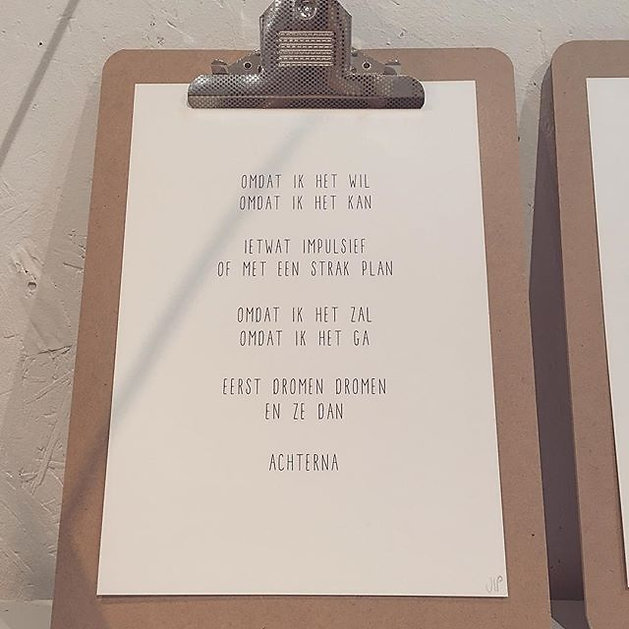 OMDAT IK HET WIL
OMDAT IK HET KAN
IETWAT IMPULSIEF
OF MET EEN STRAK PLAN
OMDAT IK HET ZAL
OMDAT IK HET GA
EERST DROMEN DROMEN
EN ZE DAN
ACHTERNA